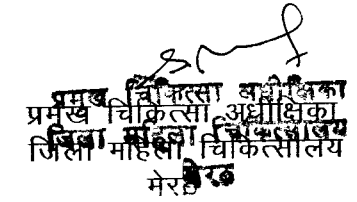 प्रमुख चिकित्सा अधीक्षिका
प्रमुख चिकित्सा अधीक्षिका
जिला महिला चिकित्सालय
जिला महिला चिकित्सालय
मेरठ
मेरठ